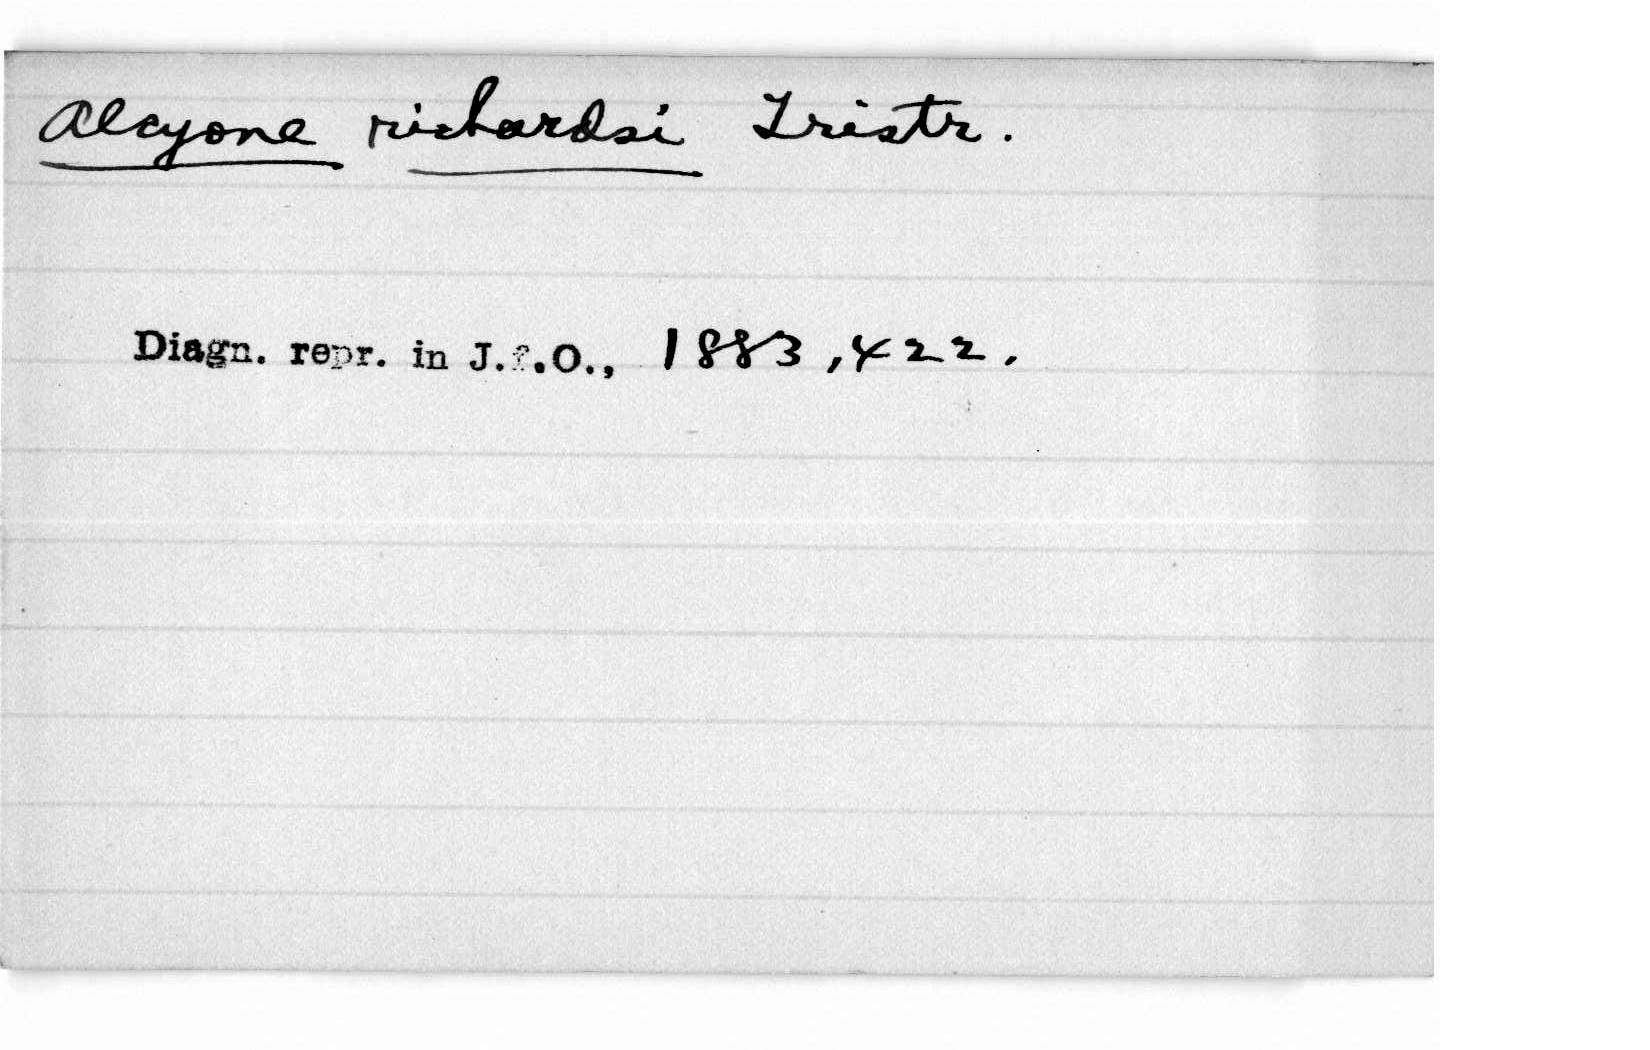 Alcyone richardsi Tristr.
Diagn. repr. in J.f.O., 1883, 422.